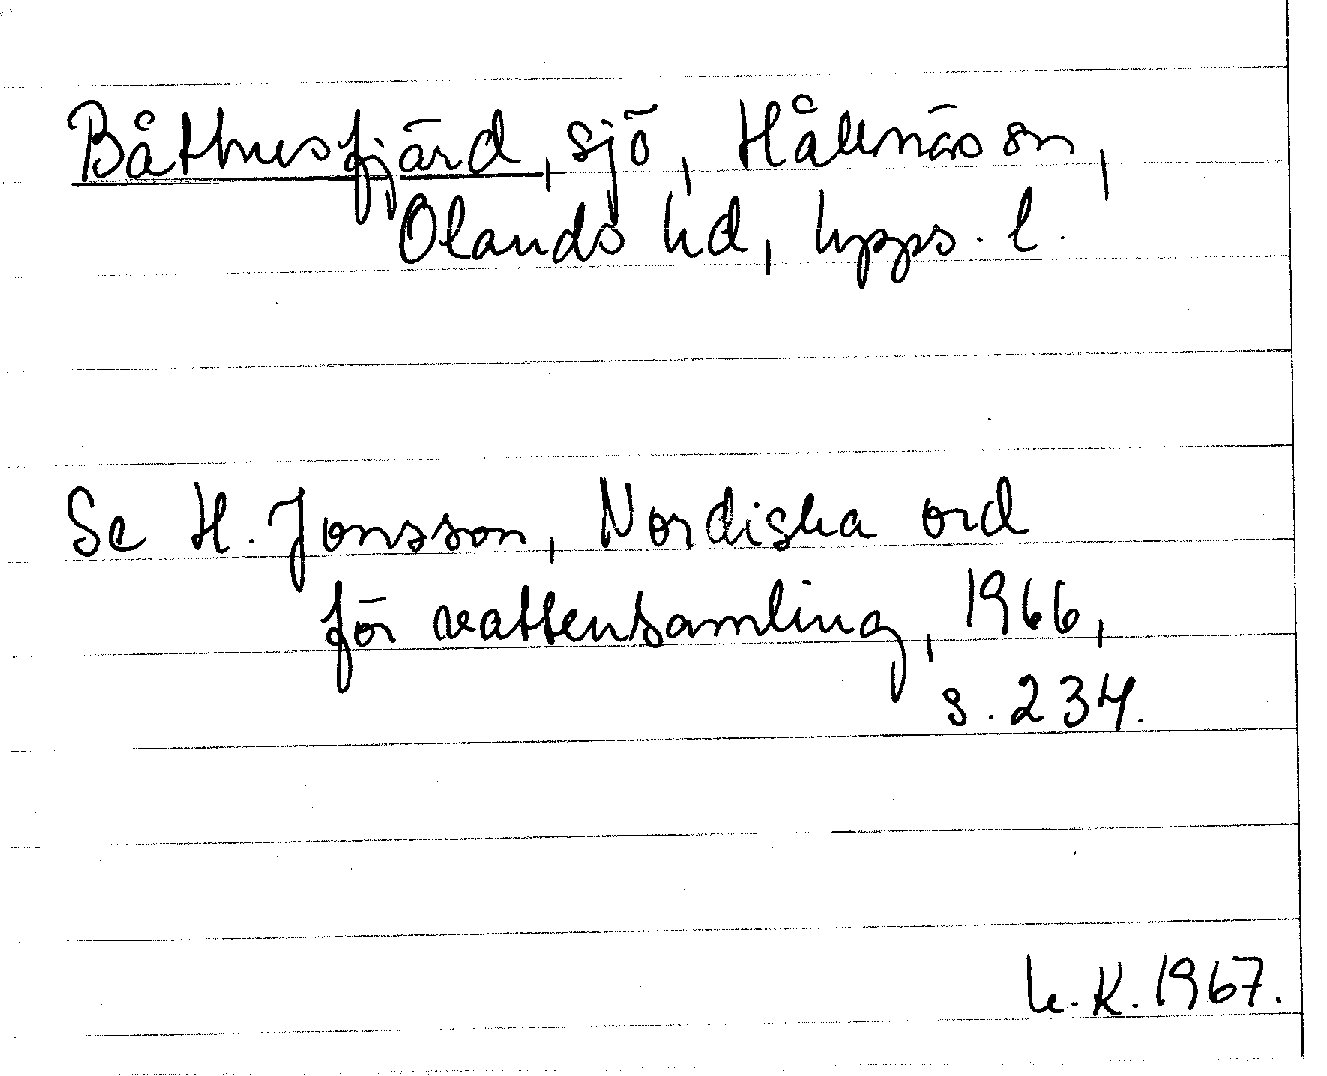 Båthusfjärd, sjö, Hållnäs sn,
Olands hd, Upps. l.
Se H. Jonsson, Nordiska ord
för vattensamling, 1966,
s. 234.
K. 1967.